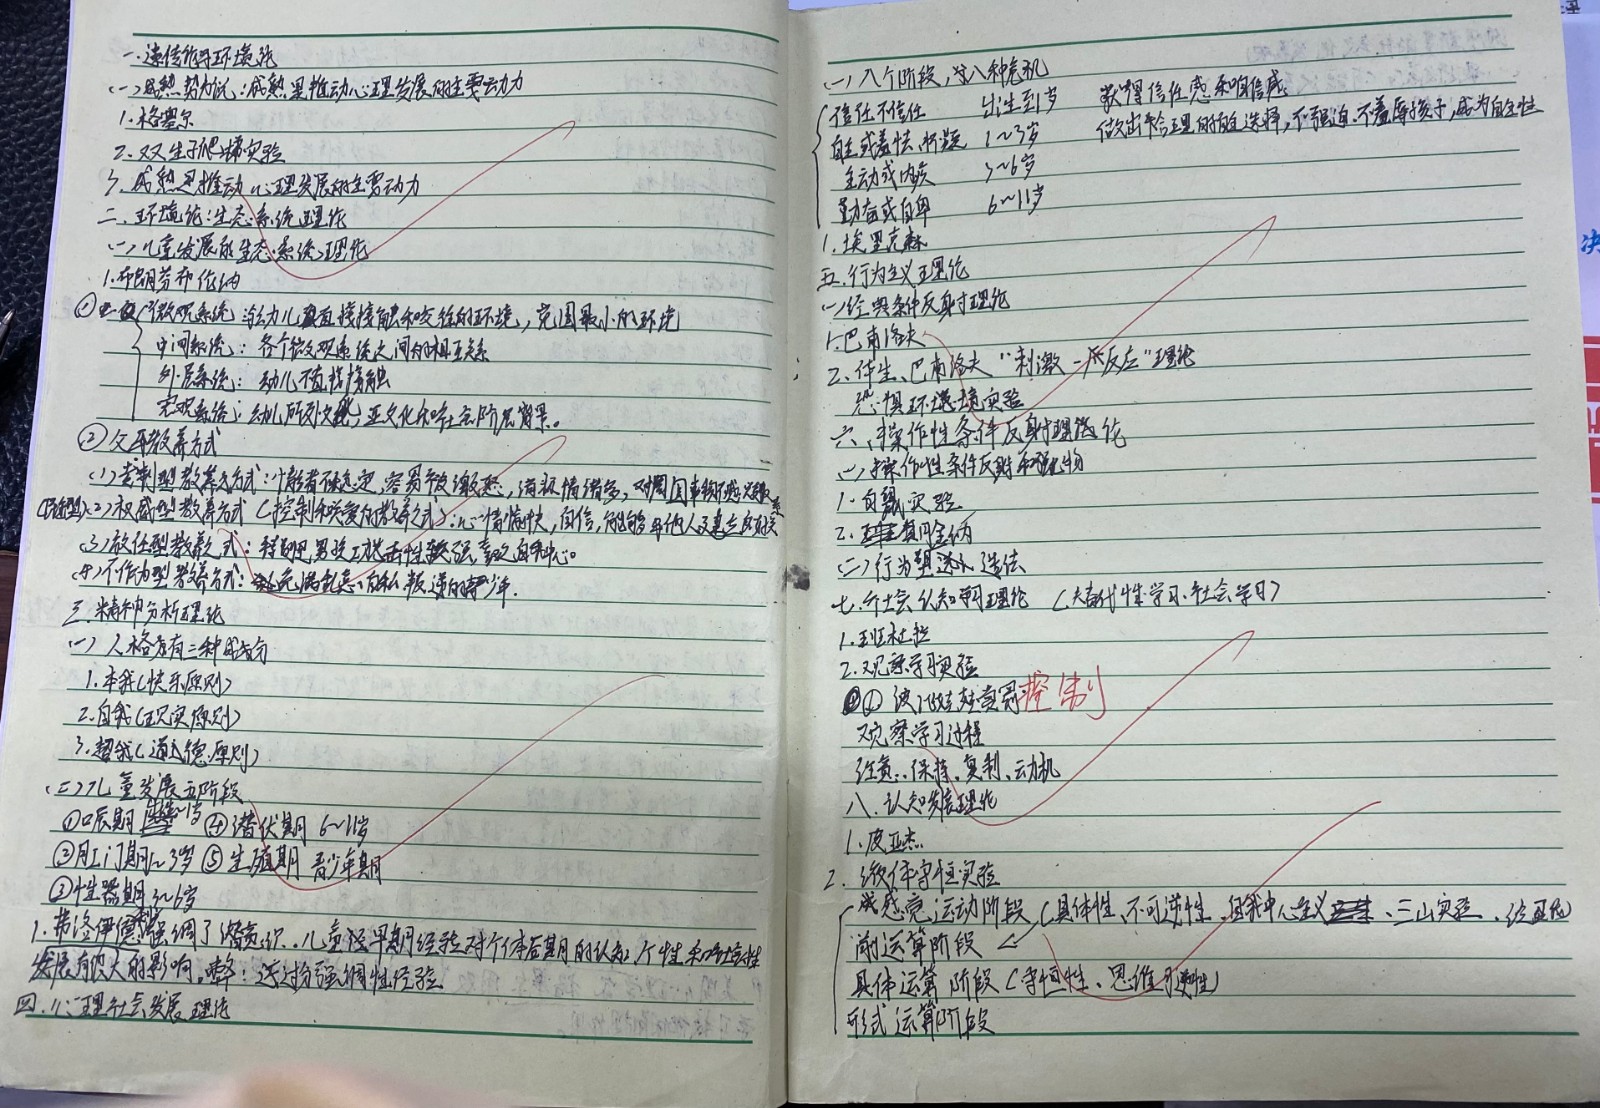 一.遗传作用环境论
(一)成熟势力说:成熟是推动心理发展的主要动力
1.格塞尔
2.双生子爬梯实验
3.成熟是推动心理发展的主要动力
二.环境论:生态系统理论
(一)儿童发展的生态系统理论
1.布朗芬布伦纳
① 微观系统 与幼儿直接接触和交往的环境,范围最小的环境
中间系统:各个微观系统之间的相互关系
外层系统:幼儿不直接接触
宏观系统:幼儿所处文化,亚文化和社会阶层背景。
②父母教养方式
(1)专制型教养方式:情绪不稳定,容易被激怒,消极情绪多,对周围事物不感兴趣
(2)权威型教养方式(控制和恢复的教养方式):心情愉快,自信,能够与他人建立友好关系
(3)放任型教养方式:特别是男孩工攻击性较强,喜欢自我中心。
(4)不作为型教养方式:充满乱忘、自私叛逆的青少年.
三.精神分析理论
(一)人格有三种成份
1.本我(快乐原则)
2.自我(现实原则)
3.超我(道德原则)
(二)儿童发展五阶段
①口唇期 ~1岁 ④潜伏期 6~11岁
②肛门期1~3岁 ⑤生殖期 青少年期
③性器期3~6岁
1.弗洛伊德强调了潜意识..儿童早期经验对个体后期的认知,个性和社会性
发展有很大的影响,弊:过分强调性经验
四.心理社会发展理论
(一)八个阶段,八种危机
信任不信任 出生到1岁 获得信任感和自信感
自主或羞怯、怀疑 1~3岁 做出合理的自主选择,不强迫、不羞辱孩子,成为自主性
主动或内疚 3~6岁
勤奋或自卑 6~11岁
1.埃里克森
五.行为主义理论
(一)经典条件反射理论
1.巴甫洛夫
2.华生、巴甫洛夫“刺激—反应”理论
恐惧环境实验
六.操作性条件反射理论
(一)操作性条件反射和强化物
1.白鼠实验
2.斯金纳
(二)行为塑造法
七.社会认知理论 (替代性学习.社会学习)
1.班杜拉
2.观察学习实验
① 波比娃娃 控制
观察学习过程
注意、保持、复制、动机
八.认知发展理论
1.皮亚杰
2.液体守恒实验
感觉运动阶段 (具体性、不可逆性、自我中心主义、三山实验、泛灵论
前运算阶段
具体运算阶段(守恒性、思维可逆性)
形式运算阶段